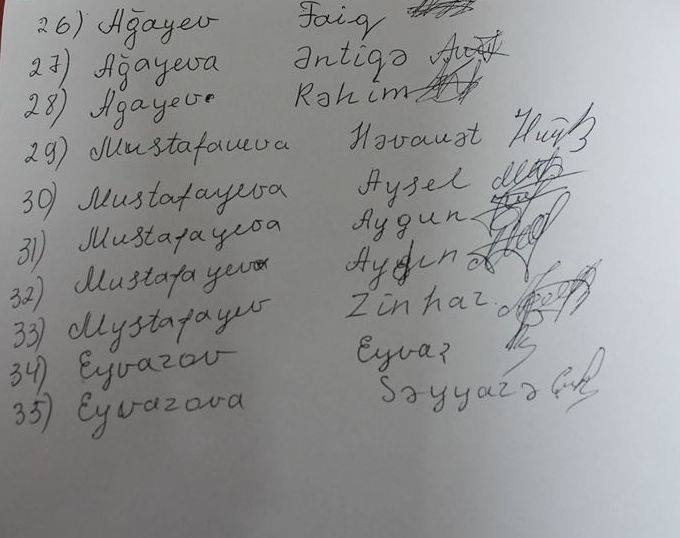 26) Ağayev Faiq
27) Ağayeva Əntiqə
28) Agayev Rəhim
29) Mustafayeva Həvauət
30) Mustafayeva Aysel
31) Mustafayeva Aygun
32) Mustafayev Aydın
33) Mystafayev Zinhar.
34) Eyvazov Eyvaz
35) Eyvazova Səyyarə